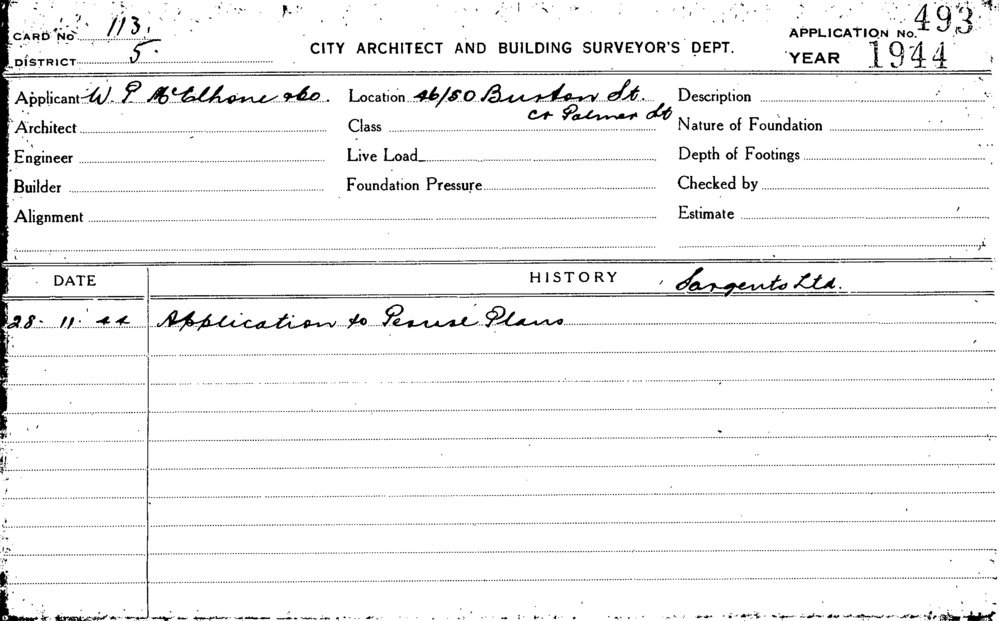 CARD No 113.
APPLICATION No. 493
DISTRICT 5.
CITY ARCHITECT AND BUILDING SURVEYOR'S DEPT.
YEAR 1944
Applicant W. P McElhone & Co. Location 46/50 Burton St. Description
cr Palmer St
Architect Class Nature of Foundation
Engineer Live Load Depth of Footings
Builder Foundation Pressure Checked by
Alignment Estimate
DATE HISTORY Sargents Ltd.
28. 11. 44 Application to Peruse Plans